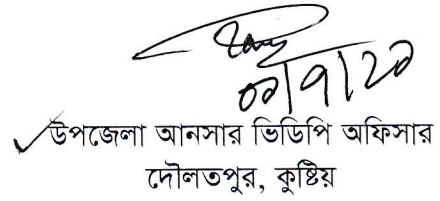 উপজেলা আনসার ভিডিপি অফিসার
দৌলতপুর, কুষ্টিয়